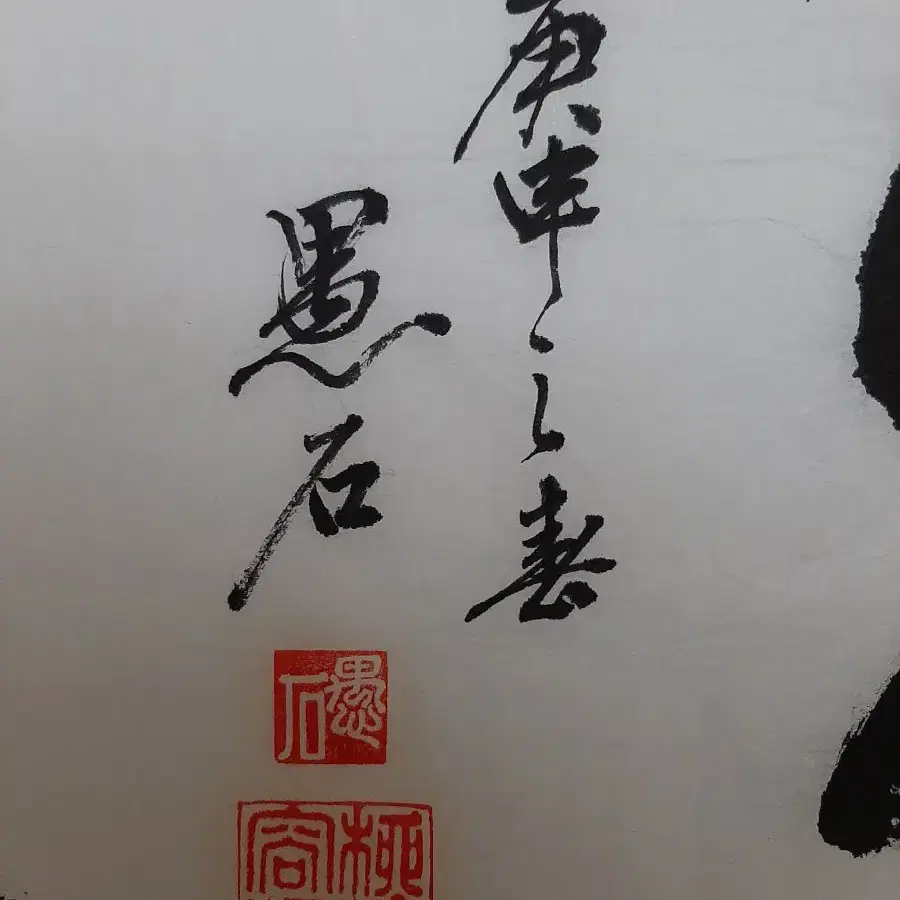 庚申之春
愚石
愚石